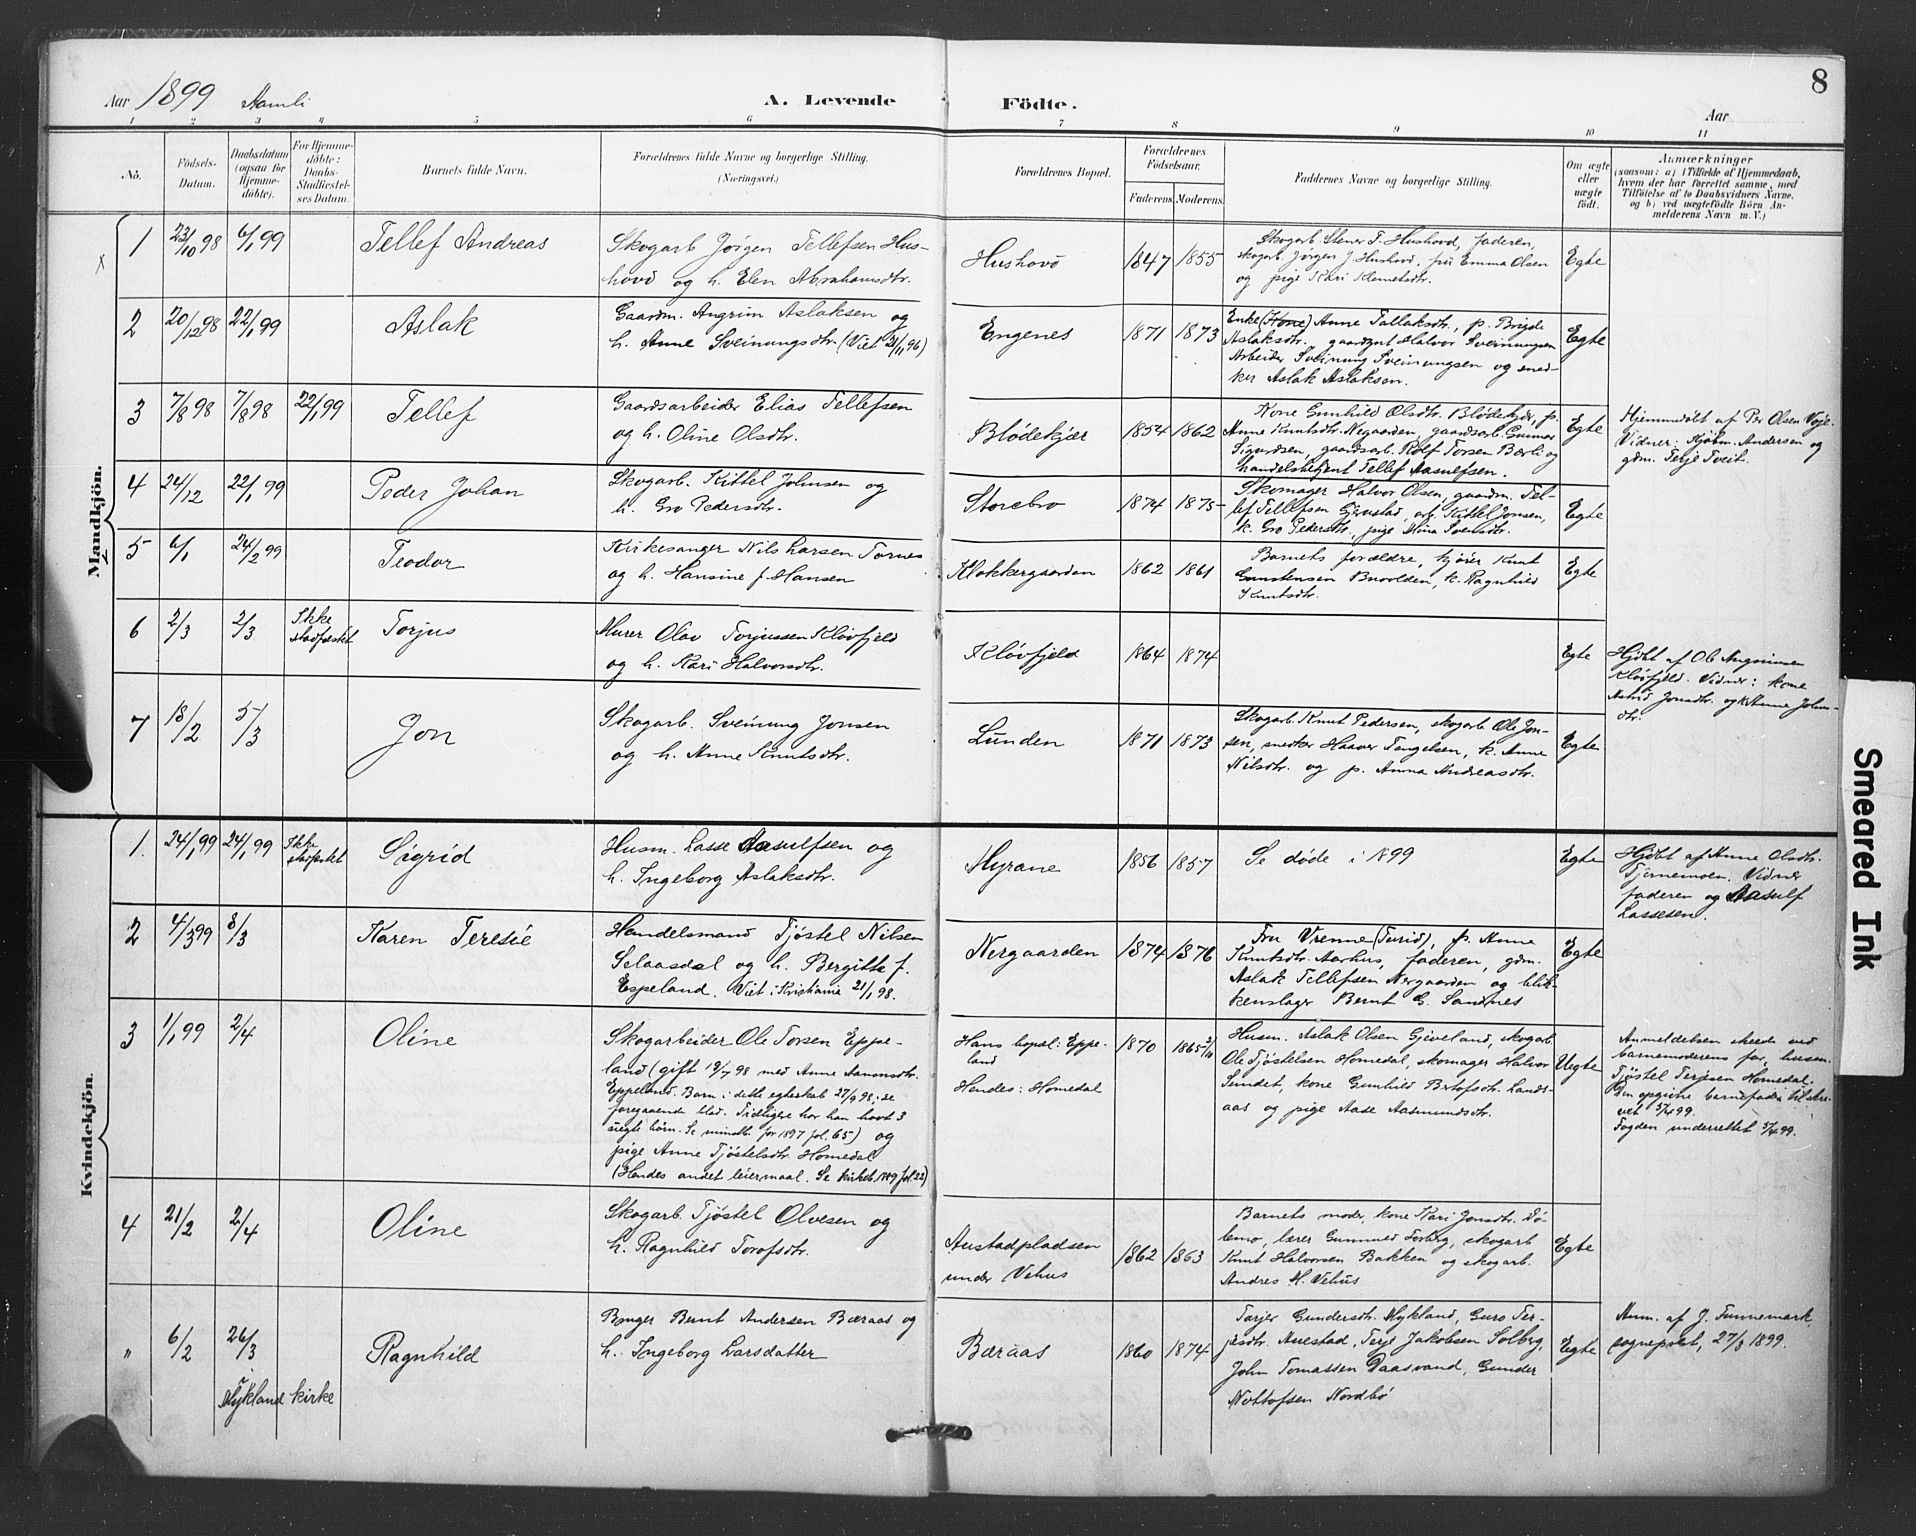 Aar 1899 Aamli A. Levende Födte. Aar 8
1 2 3 4 5 6 7 8 9 10 11
No.
Födsels-
Datum.
Daabsdatum
(ogsaa for
Hjemme-
döbte).
For Hjemme-
döbte:
Daabs-
Stadfæstel-
ses Datum.
Barnets fulde Navn.
Forældrenes fulde Navne og borgerlige Stilling.
(Næringsvei.)
Forældrenes Bopæl.
Forældrenes
Födselsaar.
Faderens Moderens
Faddernes Navne og borgerlige Stilling.
Om ægte
eller
uægte
födt.
Anmærkninger
(saasom: a) i Tilfælde af Hjemmedaab,
hvem der har forrettet samme, med
Tilföielse af to Daabsvidners Navne,
og b) ved uægtefödte Börn An-
melderens Navn m. V.)
Mandkjön.
1 23/10 98 6/1 99 Tellef Andreas
Skogarb Jörgen Tellefsen Hus-
hovd og h. Elen Abrahamsdtr.
Hushovd 1847 1855
Skogarb. Stener T. Hushovd, faderen,
skogarb. Jörgen J. Hushovd, frü Emma Olsen
og pige Kari Klemetsdtr.
Egte
2 20/12 98 22/1 99 Aslak
Gaardm. Angrim Aslaksen og
h. Anne Sveinungsdtr. (Viet 21/11 96)
Engenes 1871 1873
Enke (Kone) Anne Tallaksdtr., p. Brigde
Aslaksdtr. gaardgut Halvor Sveinungsen
Arbeider Sveinung Sveinungsen og sned-
ker Aslak Aslaksen.
Egte
3 7/8 98 7/8 98 22/1 99 Tellef
Gaardsarbeider Elias Tellefsen
og h. Oline Olsdtr.
Blödekjær 1854 1862
Kone Gunhild Olsdtr. Blödekjær, p.
Anne Knutsdtr. Nergaarden, gaardsarb. Gunnar
Sigurdsen, gaardsarb. Rolf Torsen Bærli og
handelsbetjent Tellef Aasulfsen.
Egte
Hjemmedöbt af Per Olsen Voje.
Vidner: Kjöbm. Andersen og
gdm. Terje Tveit.
4 24/12 22/1 99 Peder Johan
Skogarb. Kittel Johnsen og
h. Gro Pedersdtr.
Storebro 1874 1875
Skomager Halvor Olsen, gaardm. Tel-
lef Tellefsen Gjerustad, arb. Kittel Jonsen,
k. Gro Pedersdtr., pige Mina Svensdtr.
Egte
5 6/1 24/2 99 Teodor
Kirkesanger Nils Larsen Tornes
og h. Hansine f. Hansen
Klokkergaarden 1862 1861
Barnets forældre, kjörer Knut
Gunstensen Buvolden, k. Ragnhild
Knutsdtr.
Egte
6 2/3 2/3 Ikke
stadfæstet Torjus
Murer Olav Torjussen Klövfjeld
og h. Kari Halvorsdtr.
Klövfjeld 1864 1874
Egte
Hjdöbt af Ole Angrimsen
Klövfjeld. Vidner: kone
Astrid Jonsdtr. og k. Anne Johns-
dtr.
7 18/2 5/3 Jon
Skogarb. Sveinung Jonsen
og h. Anne Knutsdtr.
Lunden 1871 1873
Skogarb. Knut Pedersen, skogarb. Ole Jon-
sen, snedker Haaver Tengelsen, k. Anne
Nilsdtr. og p. Anna Andreasdtr.
Egte
Kvindekjön.
1. 24/1 99 24/1 99 Ikke
stadfæstet Sigrid
Husm. Lasse Aasulfsen og
h. Ingeborg Aslaksdtr.
Myrane 1856 1857
Se döde i 1899
Egte
Hjdöbt af Anne Olsdtr.
Tjernemoen. Vidner
faderen og Aasulf
Lassesen.
2 4/3 99 8/3 Karen Teresie
Handelsmand Tjöstel Nilsen
Selaasdal og h. Bergitte f.
Espeland. Viet i Kristiania 21/1 98.
Nergaarden 1874 1876
Fru Vrenne (Turid), p. Anne
Knutsdtr. Aarhus, faderen, gdm.
Aslak Tellefsen Nergaarden og blik-
kenslager Bernt G. Sandnes
Egte
3 1/1 99 2/4 Oline
Skogarbeider Ole Torsen Eppe-
land (gift 12/7 98 med Anne Aanonsdtr.
Eppeland. Barn i dette egteskab 27/9 98, se
foregaaende blad. Tidligere har han havt 3
uegte börn. Se minitb. for 1897 fol. 65) og
pige Anne Tjöstelsdtr. Homedal
(Hendes andet leiermaal. Se kirkeb. 1889 fol. 22)
Hans bopæl: Eppe-
land
Hendes: Homedal
1870 1865
Husm. Aslak Olsen Gjeveland, skogarb.
Ole Tjöstelsen Homedal, skomager Halvor
Sundet, kone Gunhild Bertofsdtr. Lands-
aas og pige Aase Aasmundsdtr.
Uegte
Anmeldelsen skede ved
barnemoderens far, husm.
Tjöstel Terjesen Homedal.
Den opgivne barnefader tilskre-
vet 5/4 99.
Fogden underrettet 5/4 99.
4 21/2 2/4 Oline
Skogarb. Tjöstel Olvesen og
h. Ragnhild Torofsdtr.
Austadpladsen
under Vehus
1862 1863
Barnets moder, kone Kari Jonsdtr. Dö-
lemo, lærer Gunmund Forberg, skogarb
Knut Halvorsen Bakken og skogarb.
Andres H. Vehus
Egte
" 6/2 26/3 Ragnhild
Mykland kirke
Bruger Bernt Andersen Bæraas og
h. Ingeborg Larsdatter
Bæraas 1860 1874
Tarjer Gundersdtr. Mykland, Guro Ter-
jesdtr. Auestad, Terje Jakobsen Solberg,
John Tomassen Daasvand, Gunder
Nottofsen Nordbö
Egte
Anm. af J. Finnemark,
sogneprest, 27/3 1899.
Smeared Ink